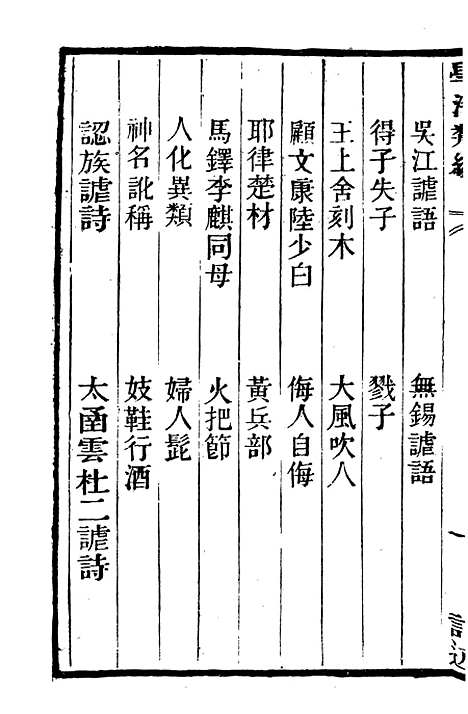 吳江謔語　無錫謔語
得子失子　戮子
王上舍刻木　大風吹人
顧文康陸少白　侮人自侮
耶律楚材　黃兵部
馬鐸李麒同母　火把節
人化異類　婦人髭
神名訛稱　妓鞋行酒
認族謔詩　太函雲杜二謔詩